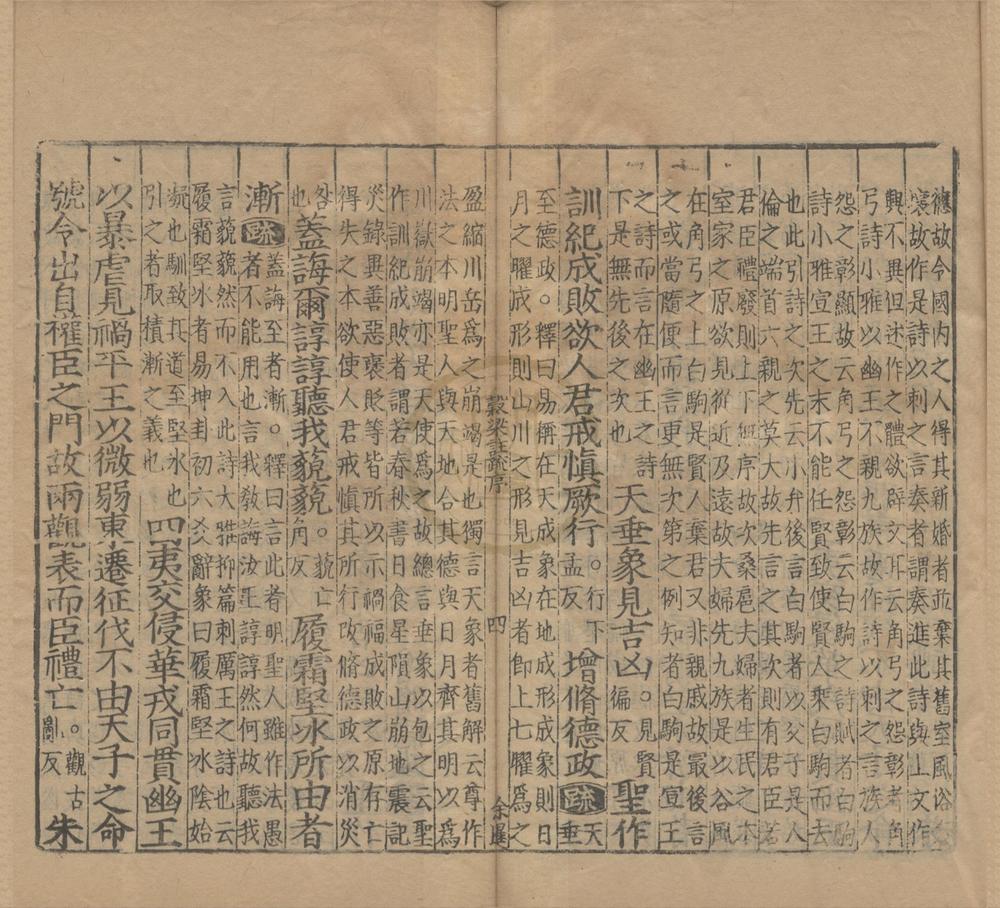 德故令國内之人得其新婚者並棄其舊室風俗
衰故作是詩以刺之言奏者謂奏進此詩與上文作
興不異但述作之體欲辟文耳云角弓之怨彰者角
弓詩小雅以幽王不親九族故作詩以刺之言族人
怨之彰顯故云角弓之怨彰云白駒之詩賦者白駒
詩小雅宣王之末不能任賢致使賢人乗白駒而去
也此引詩之次先云小弁後言白駒者以父子是人
倫之端首六親之莫大故先言之其次則有君臣若
君臣禮廢則上下無序故次桑扈夫婦者生民之本
室家之原欲見從近及遠故夫婦先九族是以谷風
在角弓之上白駒是賢人棄君又非親戚故最後言
之或當隨便而言更無次第之例知者白駒是宣王
之詩而言在幽王之詩
下是無先後之次也
天垂象見吉凶。見賢徧反 聖作
訓紀成敗欲人君戒慎厥行。行下孟反 增脩德政 疏 天垂
至德政。釋曰易稱在天成象在地成形成象則日
月之曜成形則山川之形見吉凶者即上七曜爲之
穀梁疏序 四 余暹
盈縮川岳爲之崩竭是也獨言天象者舊解云尊作
法之本明聖人與天地合其德與日月齊其明以爲
川嶽崩竭亦是天使爲之故總言垂象以包之云聖
作訓紀成敗者謂若春秋書日食星隕山崩地震記
災錄異善惡襃貶等皆所以示禍福成敗之原存亡
得失之本欲使人君戒慎其所行改脩德政以消災
咎也
蓋誨爾諄諄聽我藐藐。藐亡角反 履霜堅冰所由者
漸 疏 蓋誨至者漸。釋曰言此者明聖人雖作法愚
者不能用也言我教誨汝王諄諄然何故聽我
言藐藐然而不入此詩大雅抑篇刺厲王之詩也云
履霜堅冰者易坤卦初六爻辭象曰履霜堅冰陰始
凝也馴致其道至堅冰也
引之者取積漸之義也
四夷交侵華戎同貫幽王
以暴虐見禍平王以微弱東遷征伐不由天子之命
號令出自權臣之門故兩觀表而臣禮亡。觀古亂反 朱